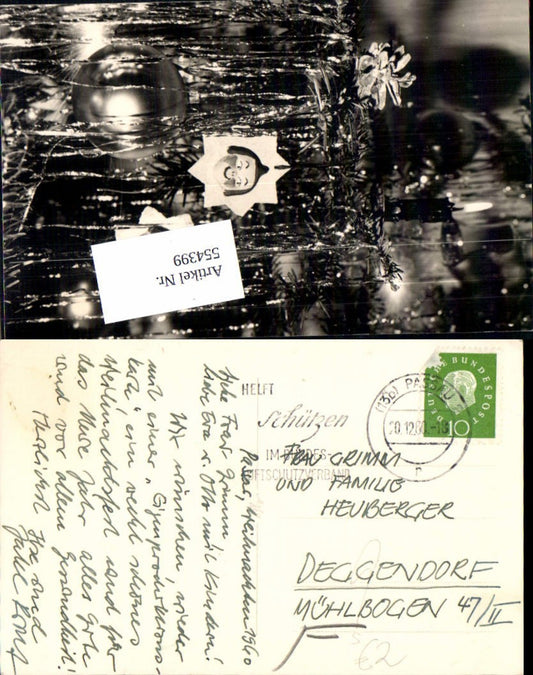 Artikel Nr.
554399
Weihnachten 1960
Frau Grimm
liebe Eva u. Otto mit Kindern!
Wir wünschen wieder
mit einer
karte" ein recht schönes
Weihnachtsfest und für
das Neue Jahr alles gute
und vor allem Gesundheit!
Herzlichst
und
HELFT
Schützen
IM BUNDES-
LUFTSCHUTZVERBAND
(13b) PASSAU
20.12.60
DEUTSCHE BUNDESPOST
10
FRAU GRIMM
UND FAMILIE
HEUBERGER
DEGGENDORF
MÜHLBOGEN 47/II
€2